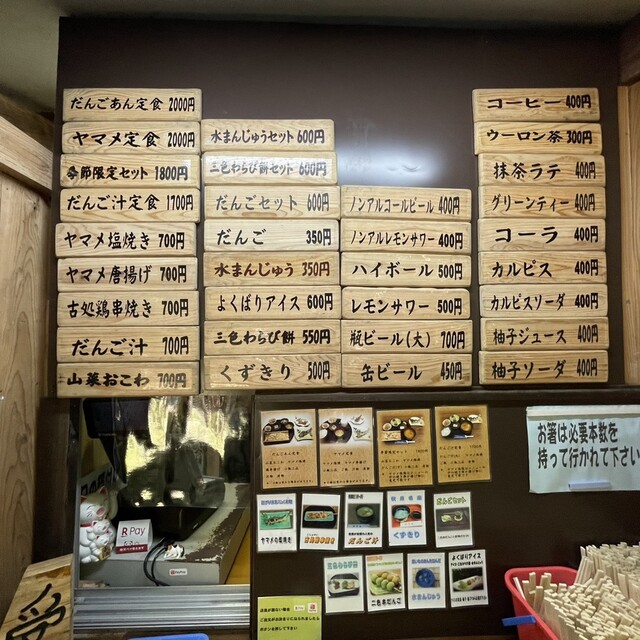 だんごあん定食 2000円
ヤマメ定食 2000円
季節限定セット 1800円
だんご汁定食 1700円
ヤマメ塩焼き 700円
ヤマメ唐揚げ 700円
古処鶏串焼き 700円
だんご汁 700円
山菜おこわ 700円
水まんじゅうセット 600円
三色わらび餅セット 600円
だんごセット 600円
だんご 350円
水まんじゅう 350円
よくばりアイス 600円
三色わらび餅 550円
くずきり 500円
ノンアルコールビール 400円
ノンアルレモンサワー 400円
ハイボール 500円
レモンサワー 500円
瓶ビール(大) 700円
缶ビール 450円
コーヒー 400円
ウーロン茶 300円
抹茶ラテ 400円
グリーンティー 400円
コーラ 400円
カルピス 400円
カルピスソーダ 400円
柚子ジュース 400円
柚子ソーダ 400円
お箸は必要本数を
持って行かれて下さい
R Pay
ヤマメの塩焼き
だんご汁
くずきり
だんごセット
三色わらび餅
二色串だんご
水まんじゅう
よくばりアイス